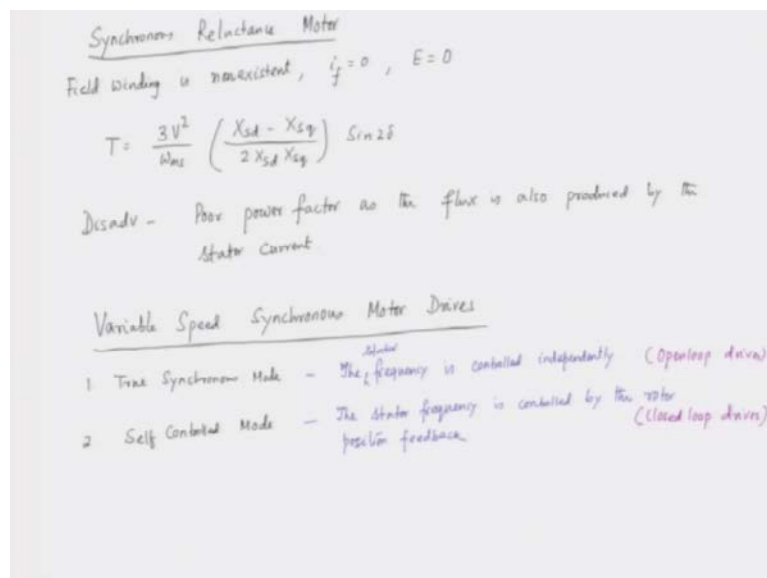 Synchronous Reluctance Motor
Field winding is nonexistent, i_f = 0, E = 0
T = 3V²/ω_ms ( (X_sd - X_sq) / (2 X_sd X_sq) ) Sin 2δ
Disadv - Poor power factor as the flux is also produced by the
stator current
Variable Speed Synchronous Motor Drives
1 True Synchronous Mode - The stator frequency is controlled independently (Openloop drives)
2 Self Controlled Mode - The stator frequency is controlled by the rotor
position feedback (Closed loop drives)